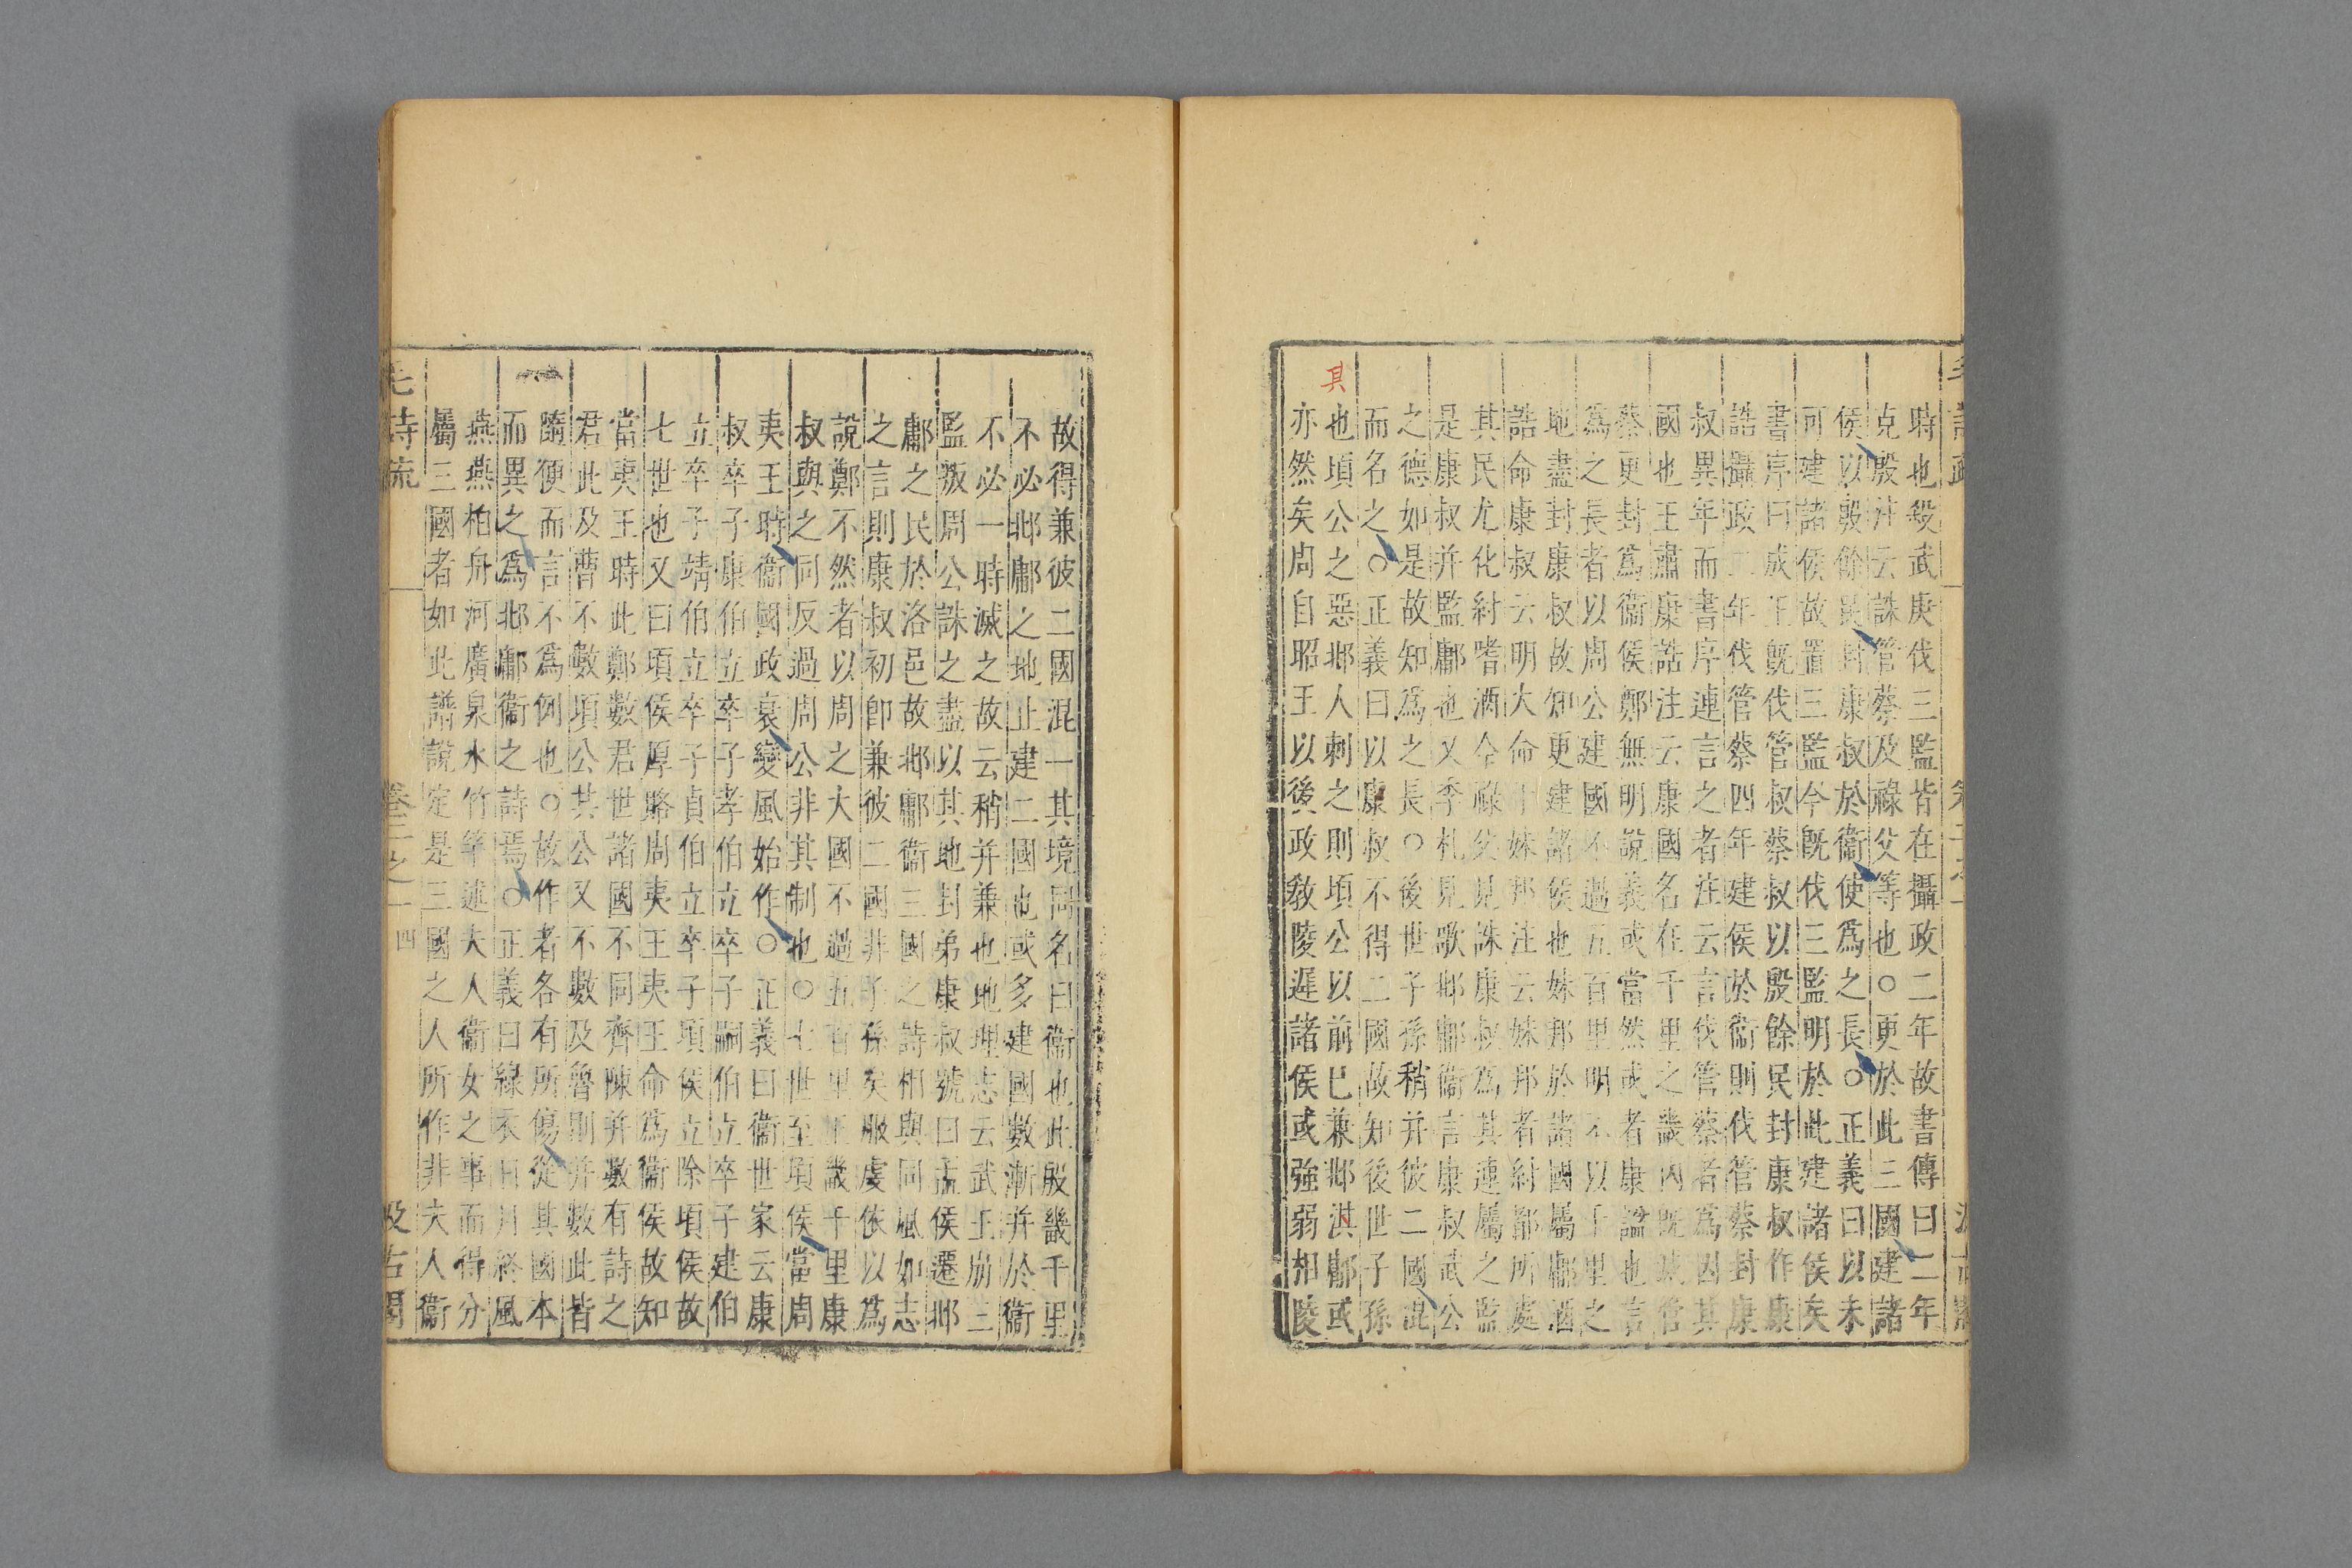 時也殺武庚伐三監皆在攝政二年故書傳曰二年
克殷注云誅管蔡及祿父等也○更於此三國建諸
侯以殷餘民封康叔於衞使爲之長○正義曰以未
可建諸侯故置三監今既伐三監明於此建諸侯矣
書序曰成王既伐管叔蔡叔以殷餘民封康叔作康
誥攝政二年伐管蔡四年建侯於衞則伐管蔡封康
叔異年而書序連言之者注云言伐管蔡者爲因其
國也王肅康誥注云康國名在千里之畿內既滅管
蔡更封爲衞侯鄭無明說義或當然或者康諡也言
爲之長者以周公建國不過五百里明不以千里之
地盡封康叔故知更建諸侯也妹邦於諸國屬鄘酒
誥命康叔云明大命于妹邦注云妹邦者紂都所處
其民尤化紂嗜酒今祿父見誅康叔爲其連屬之監
是康叔并監鄘也又季札見歌邶鄘衞言康叔武公
之德如是故知爲之長○後世子孫稍并彼二國混
而名之○正義曰以康叔不得二國故知後世子孫
也頃公之惡邶人刺之則頃公以前已兼邶淇鄘或
亦然矣周自昭王以後政敎陵遲諸侯或強弱相陵
其
故得兼彼二國混一其境同名曰衞也此殷畿千里
不必邶鄘之地止建二國也或多建國數漸并於衞
不必一時滅之故云稍并兼也地理志云武王崩三
監叛周公誅之盡以其地封弟康叔號曰孟侯遷邶
鄘之民於洛邑故邶鄘衞三國之詩相與同風如志
之言則康叔初卽兼彼二國非子孫矣服虔依以爲
說鄭不然者以周之大國不過五百里王畿千里康
叔與之同反過周公非其制也○七世至頃侯當周
夷王時衞國政衰變風始作○正義曰衞世家云康
叔卒子康伯立卒子孝伯立卒子嗣伯立卒子建伯
立卒子靖伯立卒子貞伯立卒子頃侯立除頃侯故
七世也又曰頃侯厚賂周夷王夷王命爲衞侯故知
當夷王時此鄭數君世諸國不同齊陳并數有詩之
君此及曹不數頃公其公又不數及魯則并數此皆
隨便而言不爲例也○故作者各有所傷從其國本
而異之爲邶鄘衞之詩焉○正義曰綠衣日月終風
燕燕柏舟河廣泉水竹竿述夫人衞女之事而得分
屬三國者如此譜說定是三國之人所作非夫人衞
毛詩疏 卷二之一 四 汲古閣